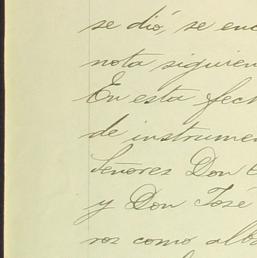 se dió, se enc
nota siguien
En esta fech
de instrumen
Señores Don
y Don José
ros como alba